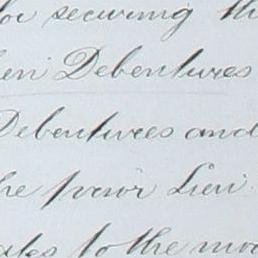 for securing th
lien Debentures
Debentures and
he prior Lien
to the mo